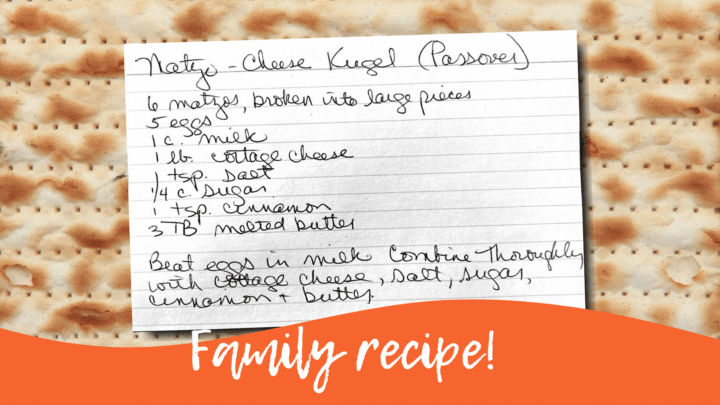 Matzo - Cheese Kugel (Passover)
6 matzos, broken into large pieces
5 eggs
1 c. milk
1 lb. cottage cheese
1 tsp. salt
1/4 c. sugar
1 tsp. cinnamon
3 TB melted butter
Beat eggs in milk Combine Thoroughly
with cottage cheese, salt, sugar,
cinnamon + butter.
Family recipe!